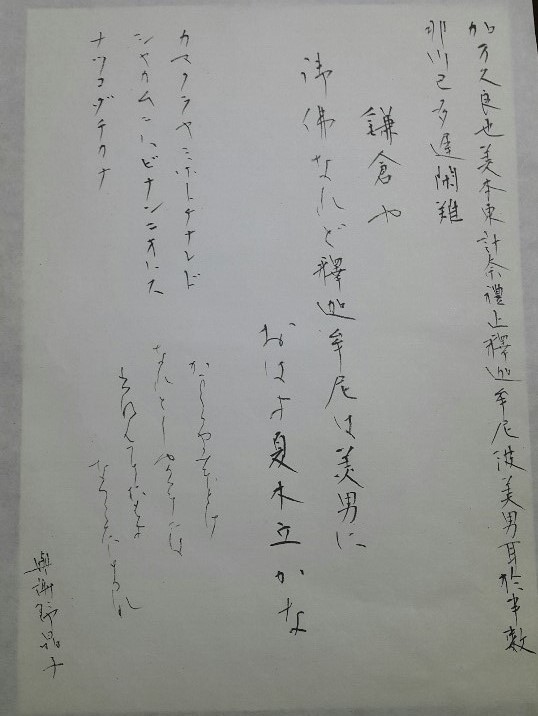 加万久良也美本東計奈禮止釋迦牟尼波美男耳於半數
那川己多遅閑難
鎌倉や
御佛なれど釋迦牟尼は美男に
おはす夏木立かな
カマクラヤミホトケナレド
シャカムニハビナンニオハス
ナツコダチカナ
かまくらやみほとけ
なれとしやかむには
與謝野晶子